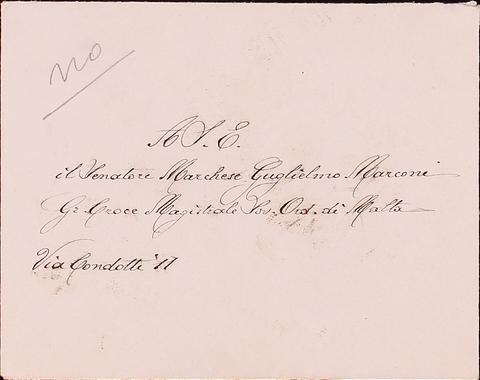 no
A S. E.
il Senatore Marchese Guglielmo Marconi
Gr. Croce Magistrale Sov. Ord. di Malta
Via Condotti 11